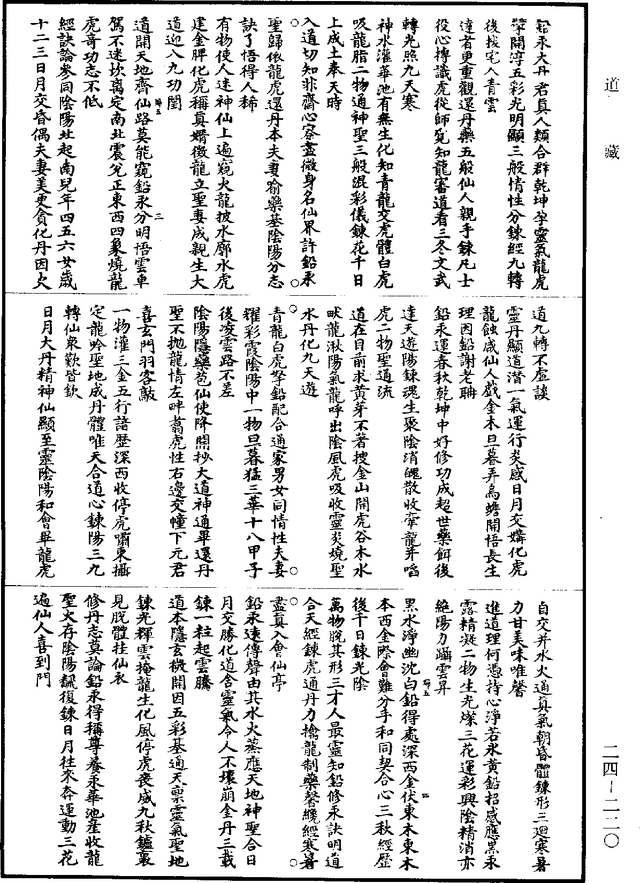 道藏
鉛汞大丹君真人類合群乾坤孕靈氣龍虎
擘開淳五彩光明顯三般情性分鍊經九轉
後拔宅入青雲
達者更重觀還丹藥五般仙人親手鍊凡士
役心摶識虎從師覓知龍審道看三冬文武
轉光照九天寒
神水灌華池有無生化知青龍交虎體白虎
吸龍脂二物通神聖三般混彩儀鍊花千日
上成土奉天時
入道切知非齋心察盡微身名仙界許鉛汞
聖歸依龍虎還丹本夫妻喻藥基陰陽分志
訣了悟得人稀
有物使人迷神仙上遍窺火龍披水廓水虎
建金脾化虎稱真婿徵龍立聖妻成親生大
道迎入九功閨
道開天地齊仙路莫能窺鉛汞分明悟雲車
駕不迷坎离定南北震兌正東西四象燒龍
虎奇功志不低
經訣論參同陰陽北起南兒年四五六女歲
十二三日月交昏偶夫妻美更貪化丹因火
道九轉不虛談
靈丹顯道潛一氣運行炎感日月交媾化虎
龍蝕咸仙人戲金木旦暮弄烏蟾開悟長生
理因鉛謝老聃
鉛汞運春秋乾坤中好修功成超世藥餌後
達天遊陽鍊魂生聚陰消魄散收牽龍并啗
虎二物聖通流
道在目前求黃芽不著搜金山開虎谷木水
畎龍湫陽氣龍呼出陰風虎吸收靈炎燒聖
水丹化九天遊
青龍白虎孥鉛配合通家男女同情性夫妻
耀彩霞陰陽中一物旦暮猛三華十八甲子
後凌雲路不差
陰陽隱藥苞仙使降開抄大道神通畢還丹
聖不拋龍情左畔翕虎性右邊交幢下元君
喜玄門羽客敲
一物灌三金五行諸歷深西收停虎嘯東攝
定龍吟聖地成丹體唯天合道心鍊陽三九
轉仙眾歎皆欽
日月大丹精神仙顯至靈陰陽和會畢龍虎
自交并水火通真氣朝昏體鍊形三迴寒暑
力甘美味唯馨
進道理何憑持心淨若氷黃鉛招感應黑汞
露精凝二物生光燦三花運彩興陰精消亦
絕陽力躡雲昇
黑水淨幽沈白鉛得處深西金伏東木東木
本西金際會難分手和同契合心三秋經歷
後千日鍊光陰
萬物脫其形三才人最靈知鉛修汞訣明道
合天經鍊虎通丹力擒龍制藥馨纔經寒暑
盡真入會仙亭
鉛汞遠傳聲由其水火蒸應天地神聖合日
月交勝化道含靈氣令人不壞崩金丹三載
鍊一粒起雲騰
道本隱玄機開因五彩基通天稟靈氣聖地
鍊光輝雲掩龍生化風停虎喪威九秋鑪裏
見脫體挂仙衣
修丹志莫論鉛汞得稱尊養汞華池產收龍
聖火存陰陽飜復鍊日月往來奔運動三花
遍仙人喜到門
二四-二二〇